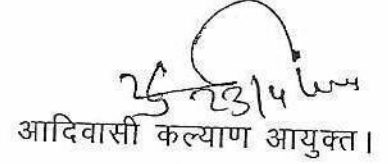 23/4
आदिवासी कल्याण आयुक्त।